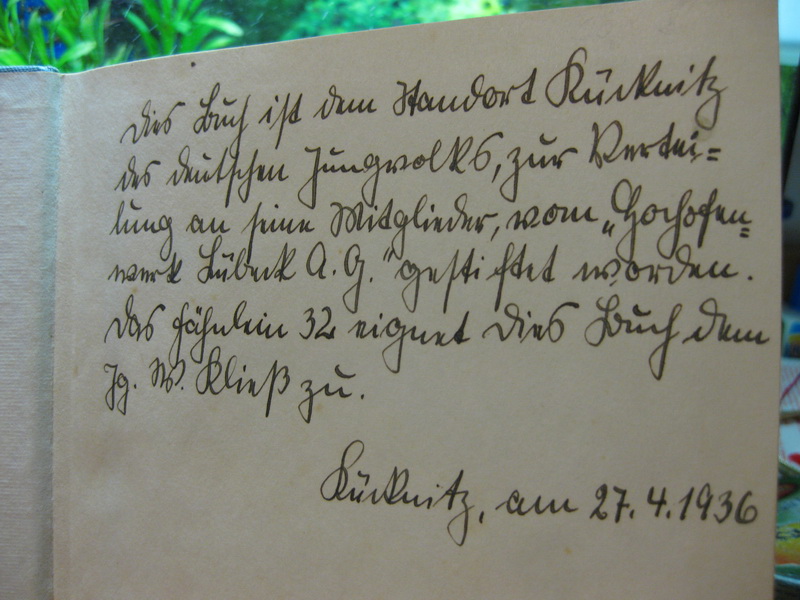 Dies Buch ist dem Standort Kücknitz
des deutschen Jungvolks, zur Vertei=
lung an seine Mitglieder, vom „Hochofen=
werk Lübeck A. G." gestiftet worden.
Das Fähnlein 32 eignet dies Buch dem
Jg. W. Kließ zu.
Kücknitz, am 27.4.1936